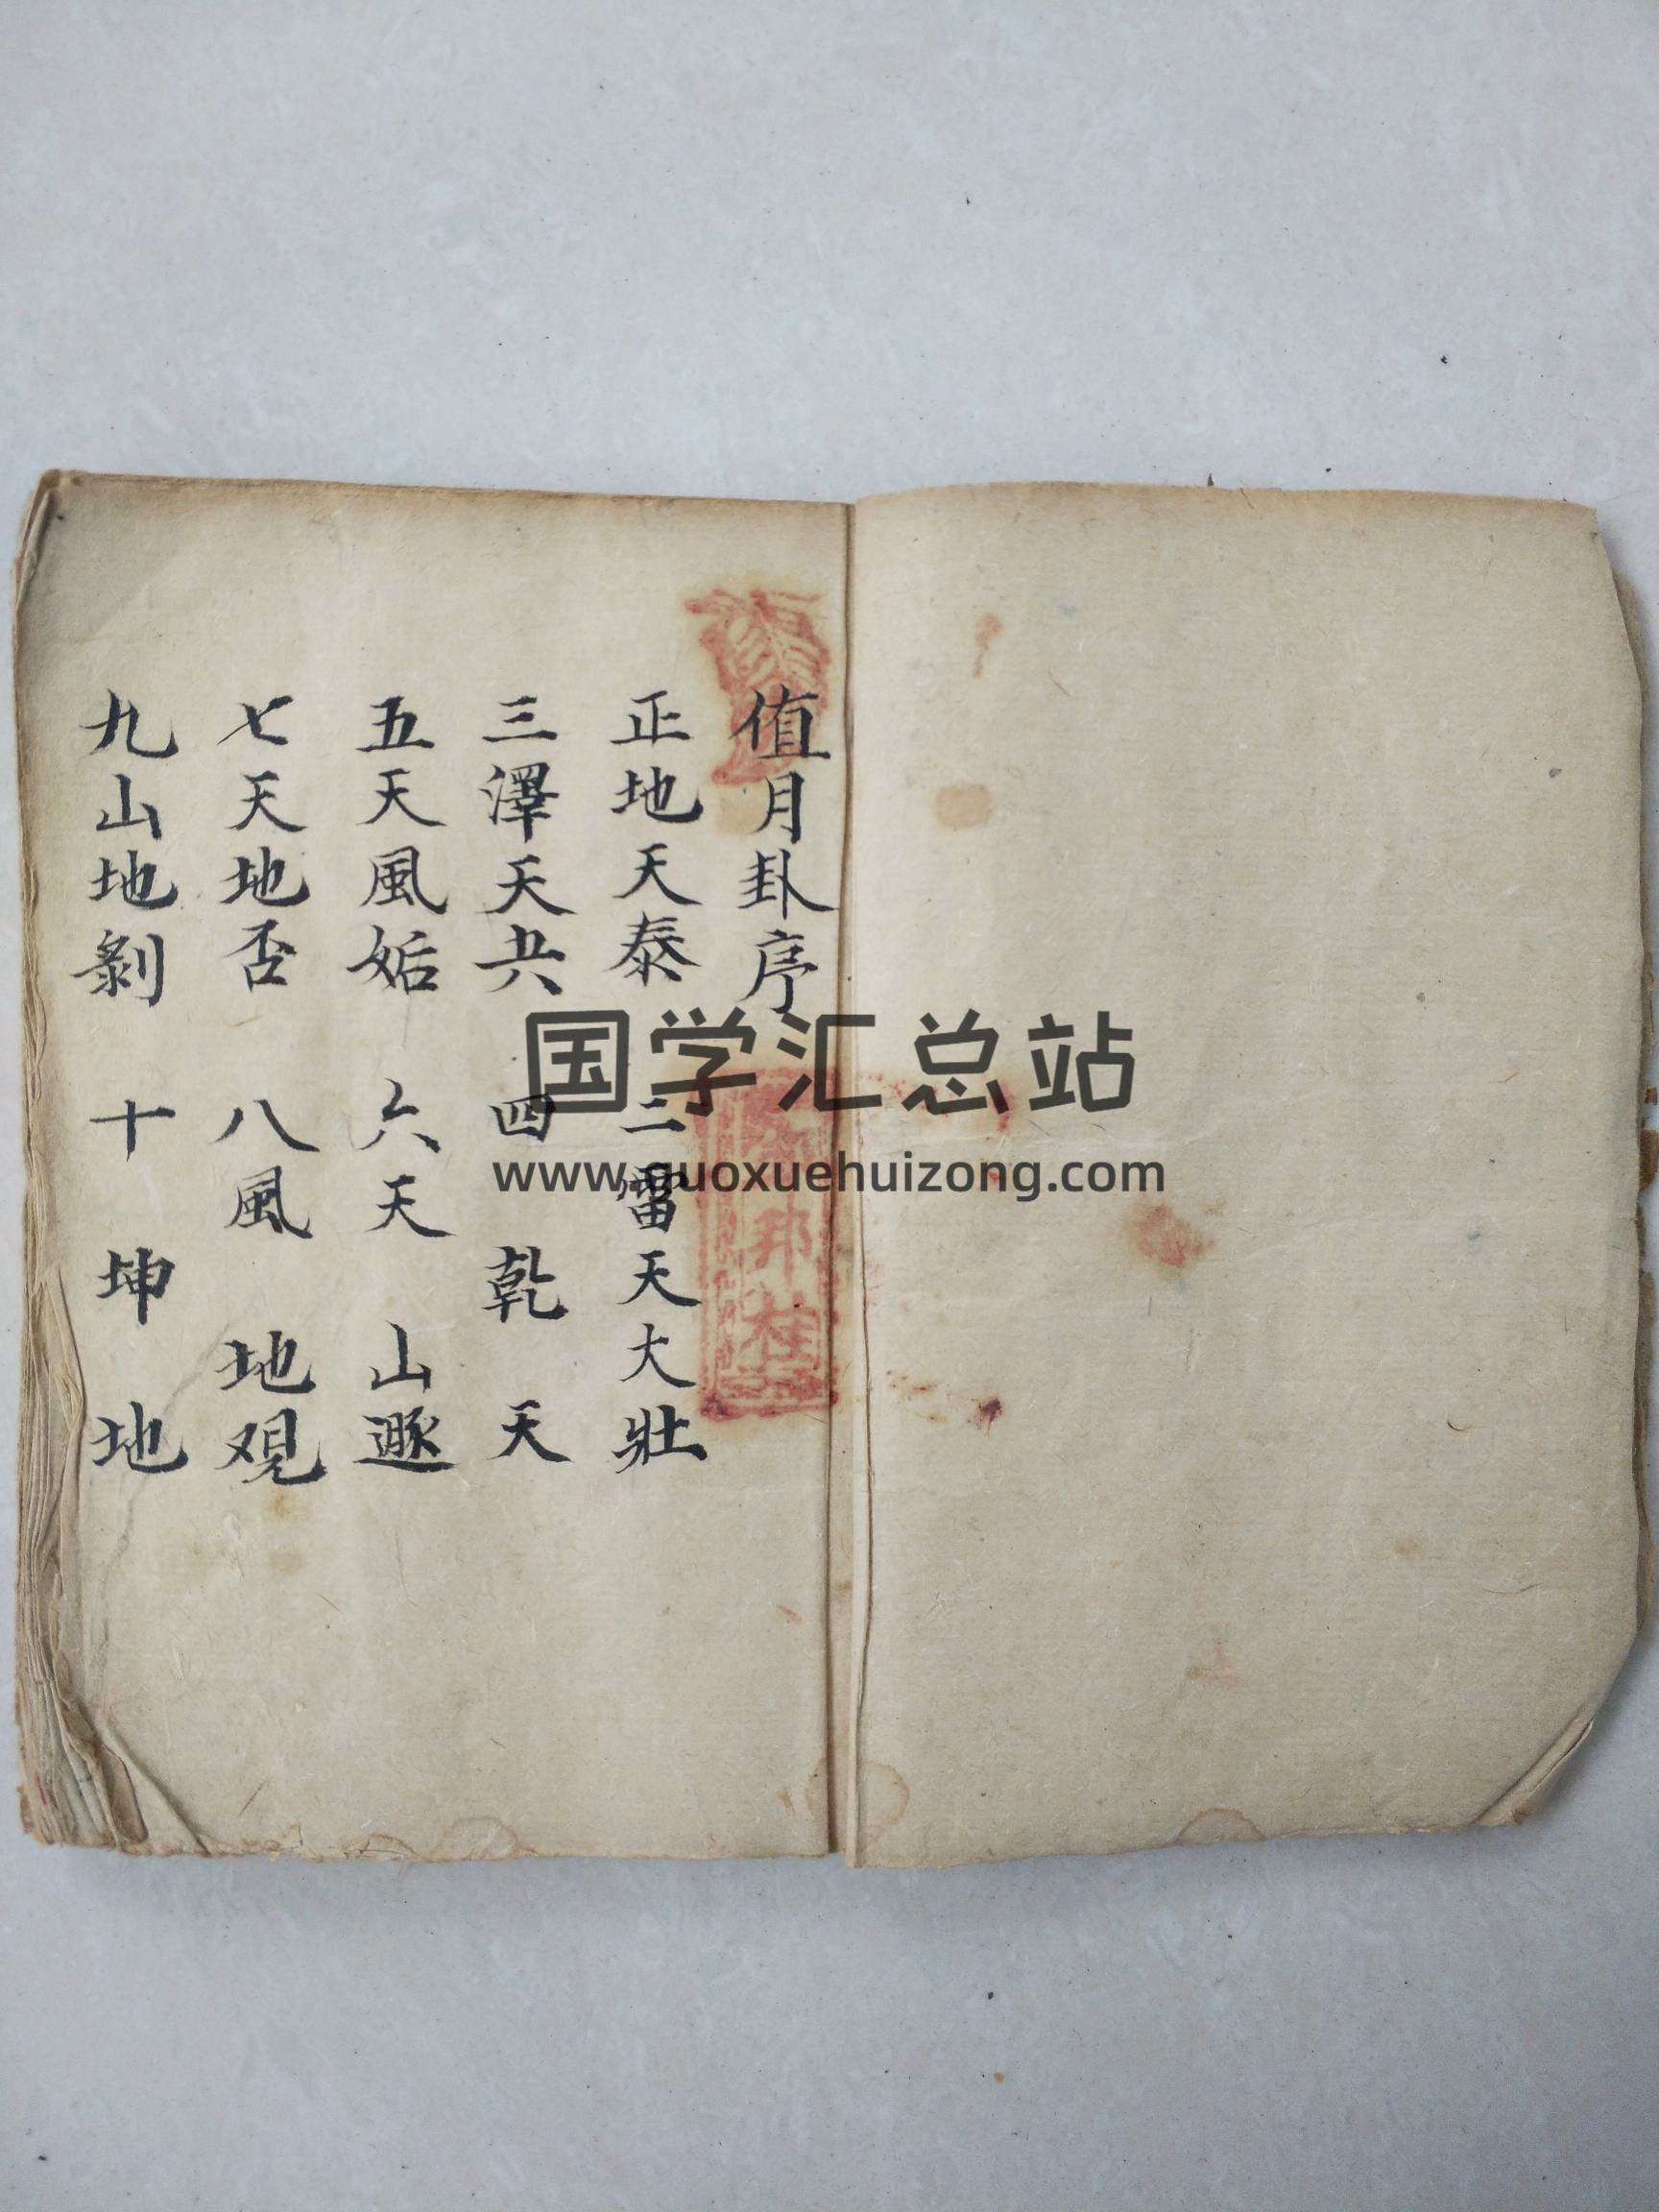 值月卦序
正地天泰 二雷天大壯
三澤天夬 四乾天
五天風姤 六天山遯
七天地否 八風地观
九山地剝 十坤地
邦桂
国学汇总站
www.guoxuehuizong.com